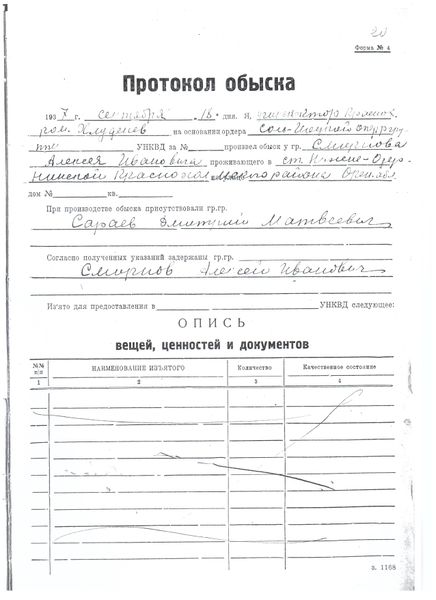 20
Форма № 4
Протокол обыска
1937 г. сентября 18 " дня. Я,
пом. Хлуденев на основании ордера Соль-Илецкой опергруп-
пы УНКВД за № произвел обыск у гр. Смирнова
Алексея Ивановича проживающего в ст.
района Орен. обл.
дом № кв.
При производстве обыска присутствовали гр.гр.
Сараев Дмитрий Матвеевич
Согласно полученных указаний задержаны гр.гр.
Смирнов Алексей Иванович
Изъято для предоставления в УНКВД следующее:
ОПИСЬ
вещей, ценностей и документов
№№ п/п НАИМЕНОВАНИЕ ИЗЪЯТОГО Количество Качественное состояние
1 2 3 4
з. 1168